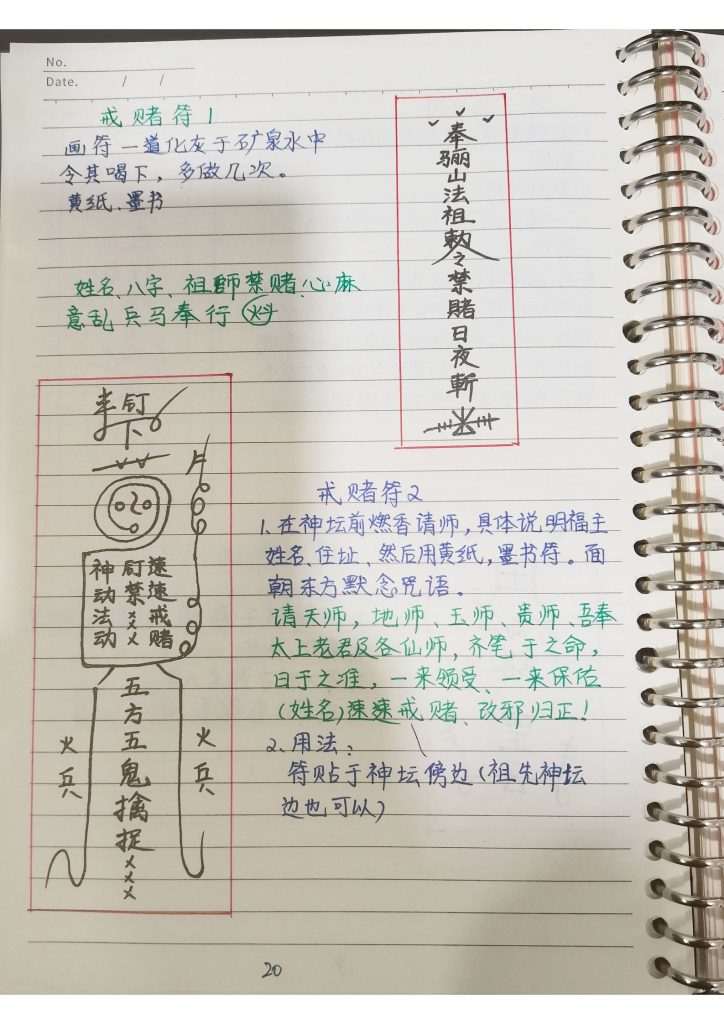 No.
Date. / /
戒赌符1
画符一道化灰于矿泉水中
令其喝下，多做几次。
黄纸、墨书
姓名、八字、祖师禁赌、心麻
意乱兵马奉行
奉骊山法祖敕之禁賭日夜斬
钉
下
速速戒赌
钉禁×××
神动法动
五方五鬼擒捉×××
火兵
火兵
戒赌符2
1、在神坛前燃香请师，具体说明福主
姓名、住址、然后用黄纸，墨书符。面
朝东方默念咒语。
请天师，地师、玉师、贵师、吾奉
太上老君及各仙师，齐笔于之命，
日于之准，一来领受、一来保佑
（姓名）速速戒赌、改邪归正！
2、用法：
符贴于神坛傍边（祖先神坛
边也可以）
20